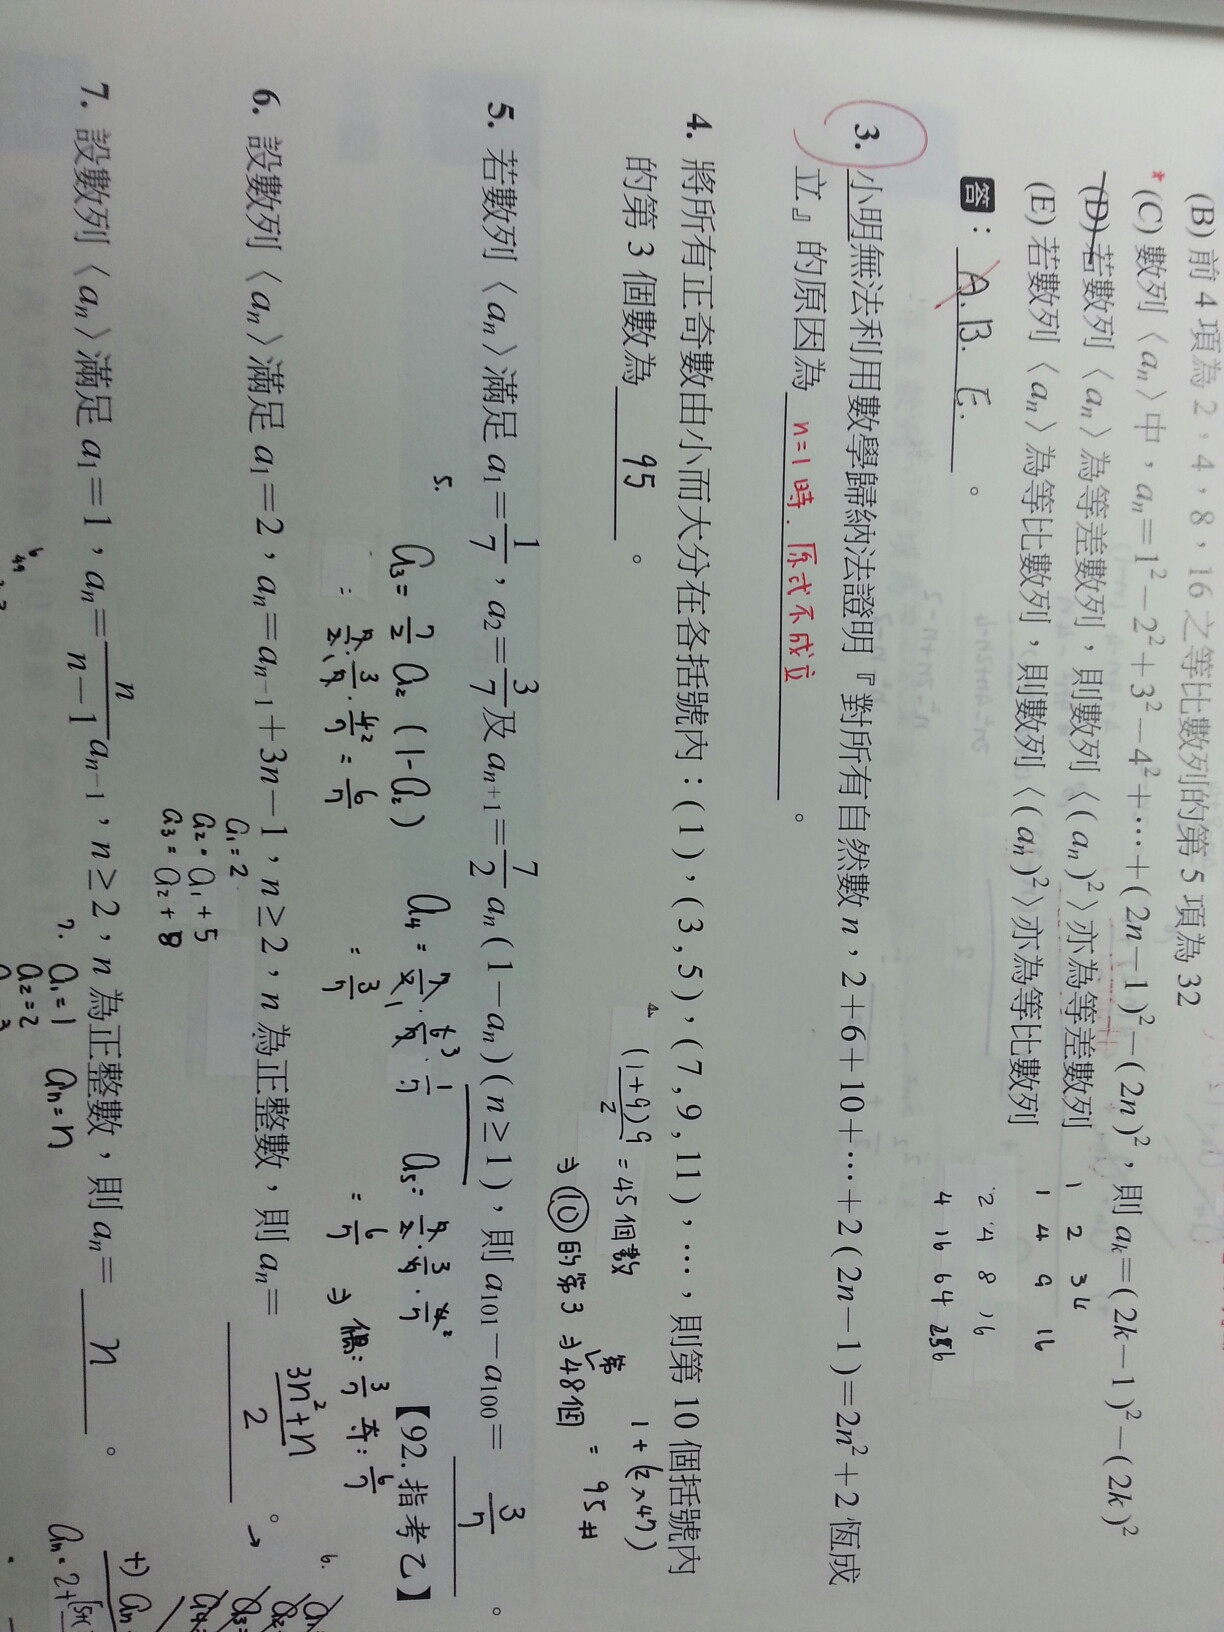 (B) 前 4 項為 2，4，8，16 之等比數列的第 5 項為 32
*(C) 數列〈aₙ〉中，aₙ＝1²－2²＋3²－4²＋⋯＋(2n－1)²－(2n)²，則 aₖ＝(2k－1)²－(2k)²
(D) 若數列〈aₙ〉為等差數列，則數列〈(aₙ)²〉亦為等差數列
1 2 3 4
(E) 若數列〈aₙ〉為等比數列，則數列〈(aₙ)²〉亦為等比數列
1 4 9 16
2 4 8 16
4 16 64 256
答：A. B. E. 。
3. 小明無法利用數學歸納法證明『對所有自然數 n，2＋6＋10＋⋯＋2(2n－1)＝2n²＋2 恆成
立』的原因為 n=1時. 原式不成立 。
4. 將所有正奇數由小而大分在各括號內：(1)，(3, 5)，(7, 9, 11)，⋯，則第 10 個括號內
的第 3 個數為 95 。
4. (1+9)9/2 = 45個數
⇒ ⑩的第3 ⇒ 第48個
1+(2×47)
= 95 #
5. 若數列〈aₙ〉滿足 a₁＝1/7，a₂＝3/7 及 aₙ₊₁＝7/2 aₙ(1－aₙ)(n≥1)，則 a₁₀₁－a₁₀₀＝ 3/7 。
【92.指考乙】
5. a₃ = 7/2 a₂ (1-a₂)
= 7/2 · 3/7 · 4/7 = 6/7
a₄ = 7/2 · 6/7 · 1/7
= 3/7
a₅ = 7/2 · 3/7 · 4/7
= 6/7
⇒ 偶: 3/7 奇: 6/7
6. 設數列〈aₙ〉滿足 a₁＝2，aₙ＝aₙ₋₁＋3n－1，n≥2，n 為正整數，則 aₙ＝ (3n²+n)/2 。→
a₁=2
a₂=a₁+5
a₃=a₂+8
7. 設數列〈aₙ〉滿足 a₁＝1，aₙ＝n/(n－1) aₙ₋₁，n≥2，n 為正整數，則 aₙ＝ n 。
7. a₁=1
a₂=2
aₙ=n
6.